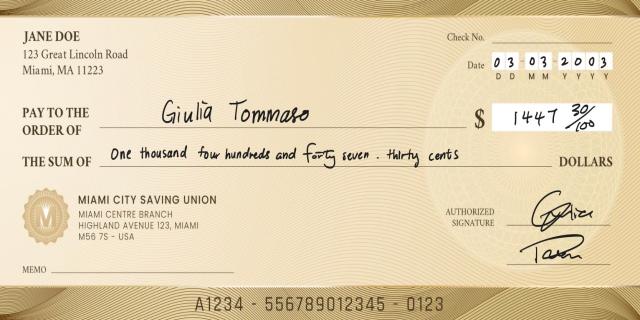 JANE DOE
123 Great Lincoln Road
Miami, MA 11223
Check No.
Date 03-03-2003
D D M M Y Y Y Y
PAY TO THE ORDER OF Giulia Tommaso $ 1447 30/100
THE SUM OF One thousand four hundreds and forty seven . thirty cents DOLLARS
M
MIAMI CITY SAVING UNION
MIAMI CENTRE BRANCH
HIGHLAND AVENUE 123, MIAMI
M56 7S - USA
AUTHORIZED SIGNATURE
MEMO
A1234 - 556789012345 - 0123